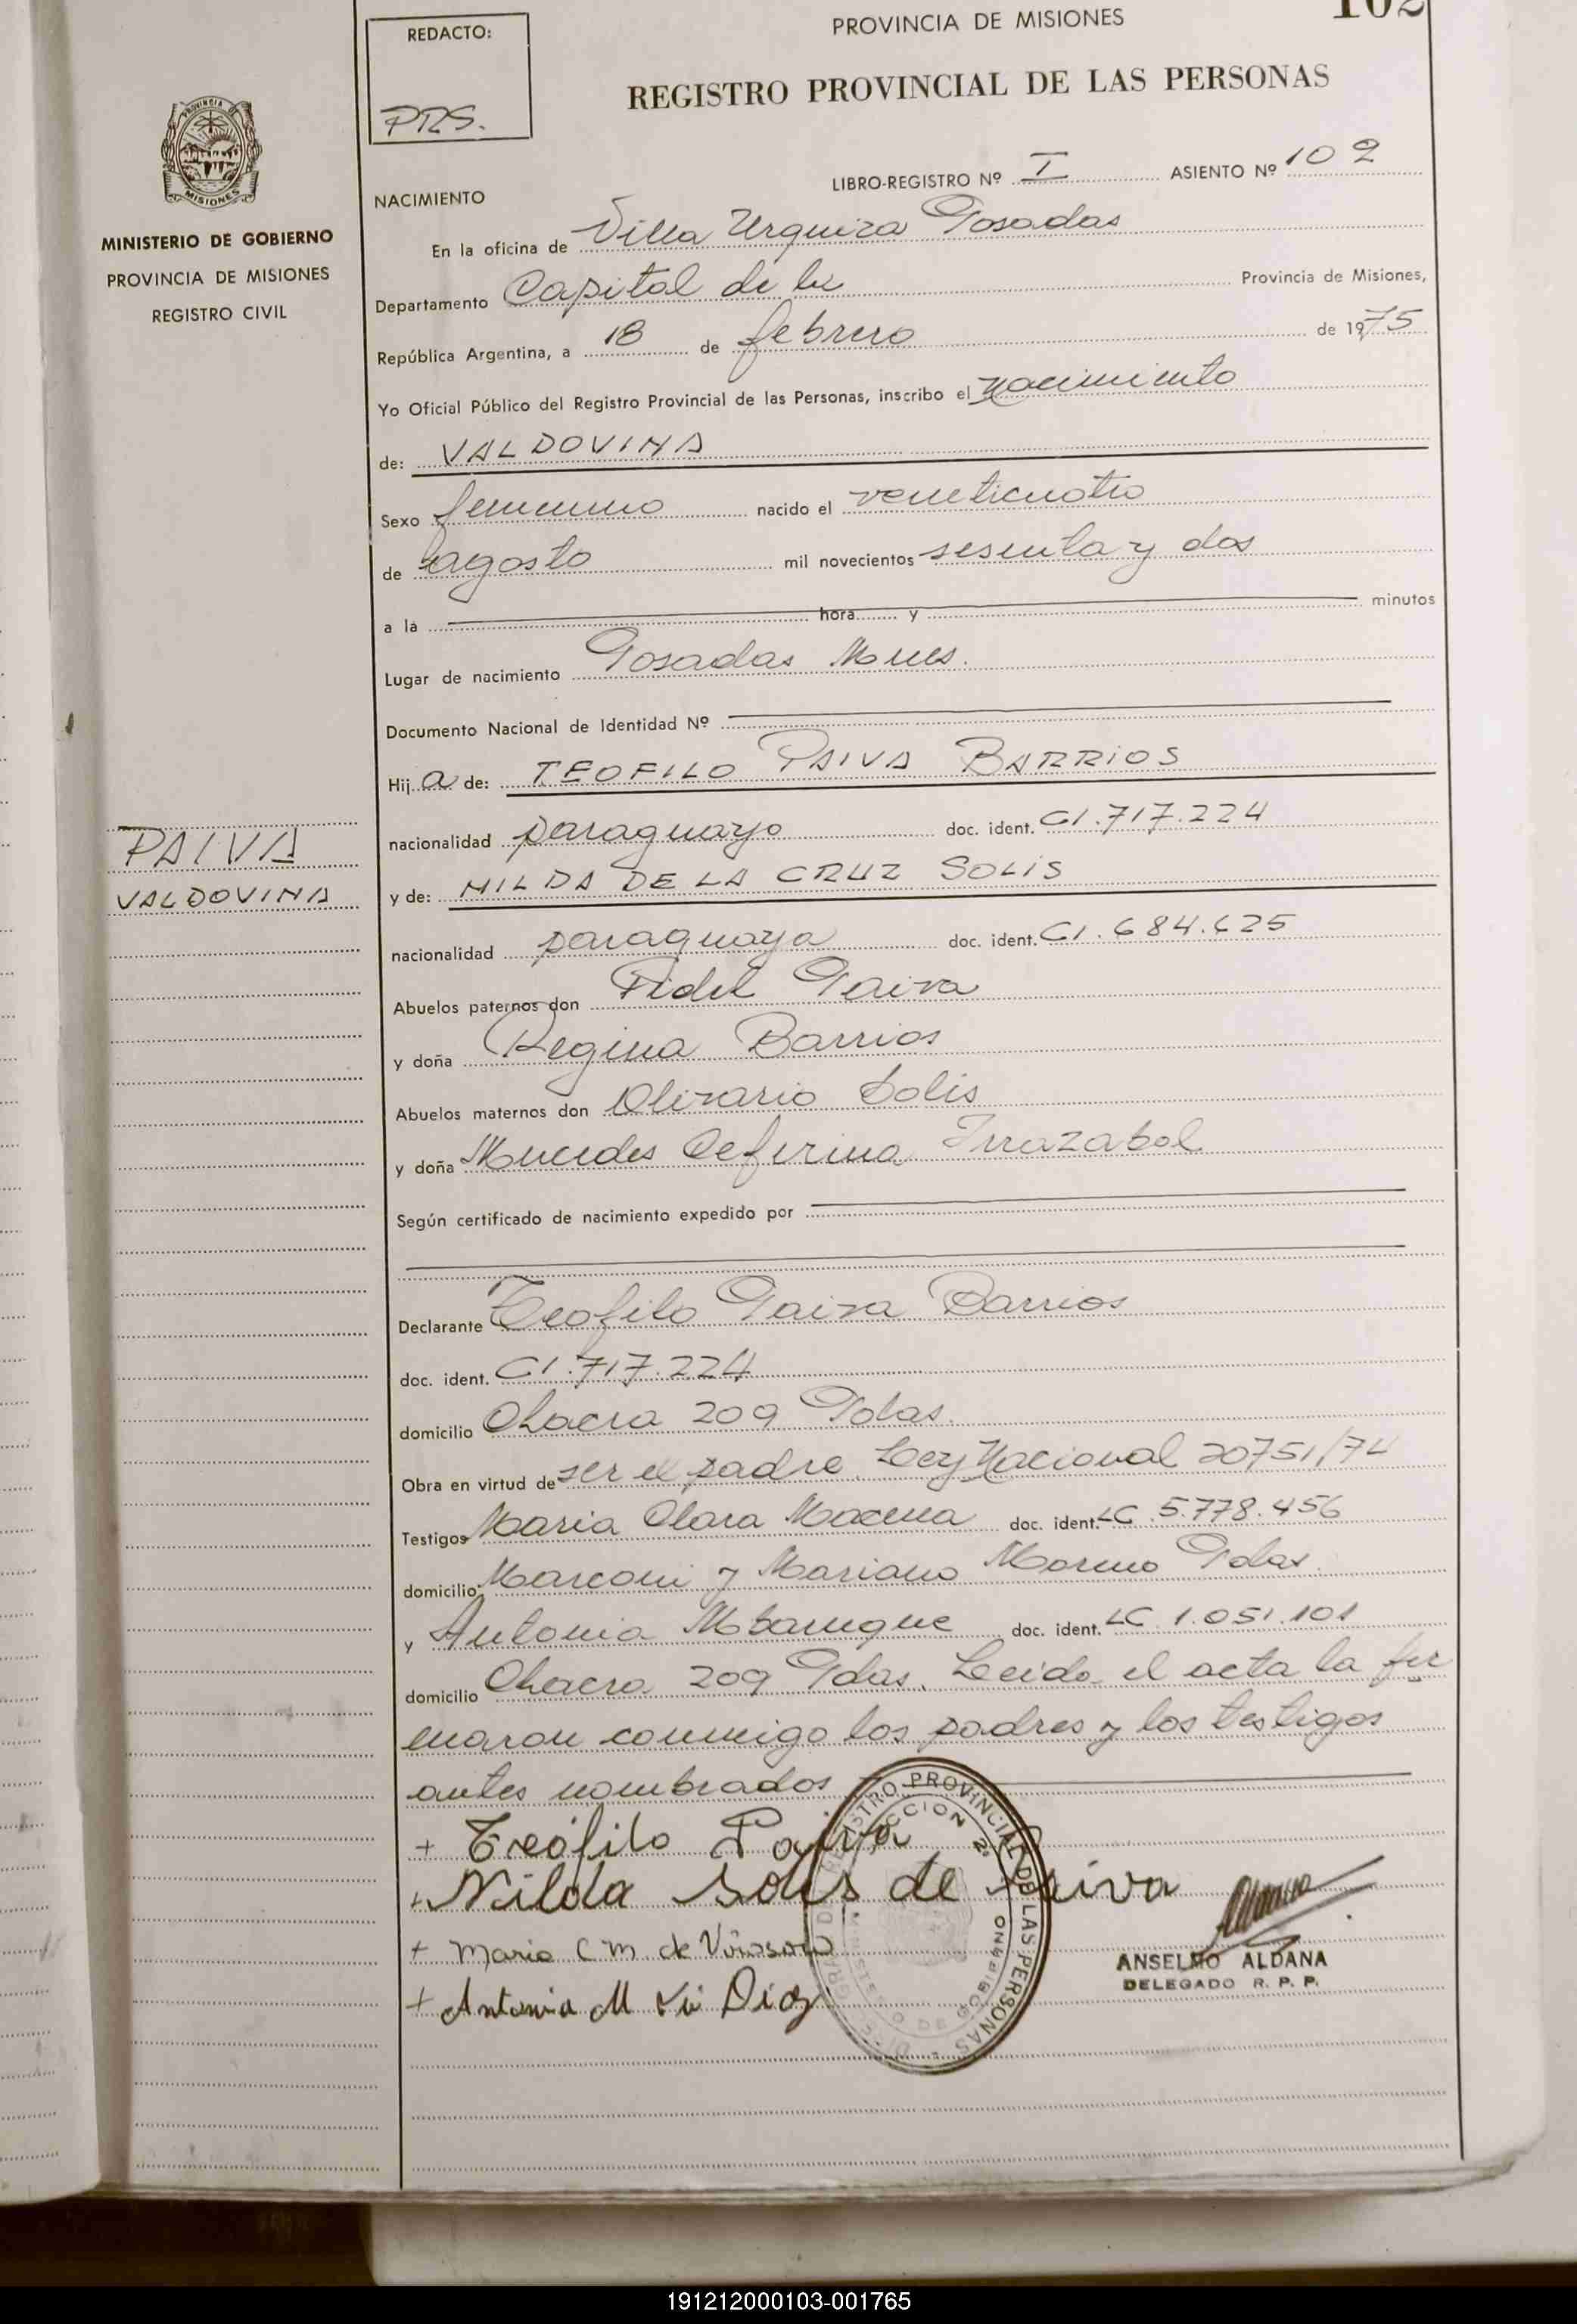 102
PROVINCIA DE MISIONES
REDACTO:
PRS.
REGISTRO PROVINCIAL DE LAS PERSONAS
PROVINCIA DE
MISIONES
MINISTERIO DE GOBIERNO
PROVINCIA DE MISIONES
REGISTRO CIVIL
LIBRO-REGISTRO Nº I ASIENTO Nº 102
NACIMIENTO
En la oficina de Villa Urquiza Posadas
Departamento Capital de la Provincia de Misiones,
República Argentina, a 18 de febrero de 1975
Yo Oficial Público del Registro Provincial de las Personas, inscribo el Nacimiento
de: VALDOVINA
Sexo femenino nacido el veinticuatro
de agosto mil novecientos sesenta y dos
a la hora y minutos
Lugar de nacimiento Posadas Mnes.
Documento Nacional de Identidad Nº
Hij a de: TEOFILO PAIVA BARRIOS
nacionalidad paraguayo doc. ident. CI.717.224
PAIVA
VALDOVINA
y de: NILDA DE LA CRUZ SOLIS
nacionalidad paraguaya doc. ident. CI.684.625
Abuelos paternos don Fidel Paiva
y doña Regina Barrios
Abuelos maternos don Olivario Solis
y doña Mercedes Ceferina Irrazabal
Según certificado de nacimiento expedido por
Declarante Teofilo Paiva Barrios
doc. ident. CI.717.224
domicilio Chacra 209 Pdas.
Obra en virtud de ser el padre. Ley Nacional 20751/74
Testigos Maria Clara Macena doc. ident. LC 5.778.456
domicilio Marconi y Mariano Moreno Pdas.
y Antonia Mbarugue doc. ident. LC 1.051.101
domicilio Chacra 209 Pdas. Leida el acta la fir
maron conmigo los padres y los testigos
antes nombrados
+ Teófilo Paiva
+ Nilda Solis de Paiva
+ Maria C M de
+ Antonia M de Diaz
REGISTRO PROVINCIAL DE LAS PERSONAS
SECCION 2ª
MINISTERIO DE GOBIERNO
ANSELMO ALDANA
DELEGADO R. P. P.
191212000103-001765